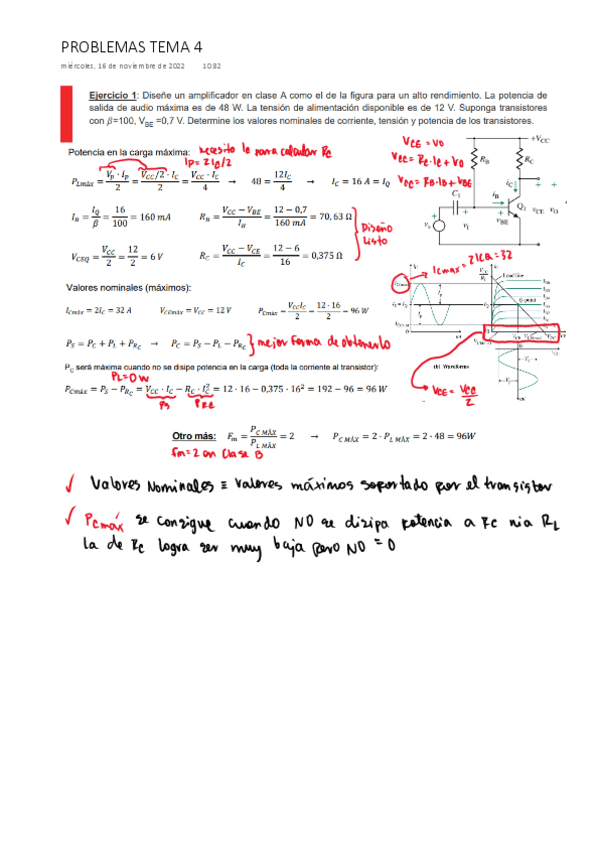 PROBLEMAS TEMA 4
miércoles, 16 de noviembre de 2022 10:32
Ejercicio 1: Diseñe un amplificador en clase A como el de la figura para un alto rendimiento. La potencia de
salida de audio máxima es de 48 W. La tensión de alimentación disponible es de 12 V. Suponga transistores
con β=100, V_BE =0,7 V. Determine los valores nominales de corriente, tensión y potencia de los transistores.
Potencia en la carga máxima: necesito Ic para calcular Rc
Ip = 2IQ/2
P_Lmáx = V_p · i_p / 2 = V_CC/2 · I_C / 2 = V_CC · I_C / 4 → 48 = 12I_C / 4 → I_C = 16 A = I_Q
VCE = VO
VCC = RC·IC + VO
VCC = RB·IB + VBE
+V_CC
R_B
R_C
i_C
i_B
C_1
Q_1
v_CE
v_O
v_BE
v_s
v_i
I_B = I_Q / β = 16 / 100 = 160 mA
R_B = V_CC − V_BE / I_B = 12 − 0,7 / 160 mA = 70,63 Ω
Diseño
Listo
V_CEQ = V_CC / 2 = 12 / 2 = 6 V
R_C = V_CC − V_CE / I_C = 12 − 6 / 16 = 0,375 Ω
Icmax = 2ICQ = 32
Load line
Q-point
(b) Waveforms
VCE = VCC / 2
Valores nominales (máximos):
I_Cmáx = 2I_C = 32 A V_CEmáx = V_CC = 12 V P_Cmáx = V_CC I_C / 2 = 12 · 16 / 2 = 96 W
P_S = P_C + P_L + P_RC → P_C = P_S − P_L − P_RC } mejor forma de obtenerlo
P_C será máxima cuando no se disipe potencia en la carga (toda la corriente al transistor):
PL = 0 W
P_Cmáx = P_S − P_RC = V_CC · I_C − R_C · I_C² = 12 · 16 − 0,375 · 16² = 192 − 96 = 96 W
PS PRC
Otro más: F_m = P_C MÁX / P_L MÁX = 2 → P_C MÁX = 2 · P_L MÁX = 2 · 48 = 96W
Fm = 2 en Clase B
✓ Valores Nominales ≡ Valores máximos soportado por el transistor
✓ Pcmáx se consigue cuando NO se disipa potencia a Rc ni a RL
la de Rc logra ser muy baja pero NO = 0